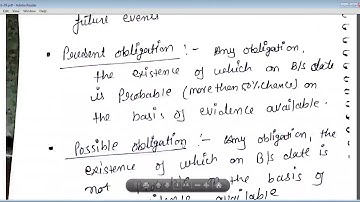 future events
• Present obligation :- Any obligation,
the existence of which on B/s date
is Probable (more than 50% chance) on
the basis of evidence available.
• Possible obligation :- Any obligation, the
existence of which on B/s date is
not on the basis of
available